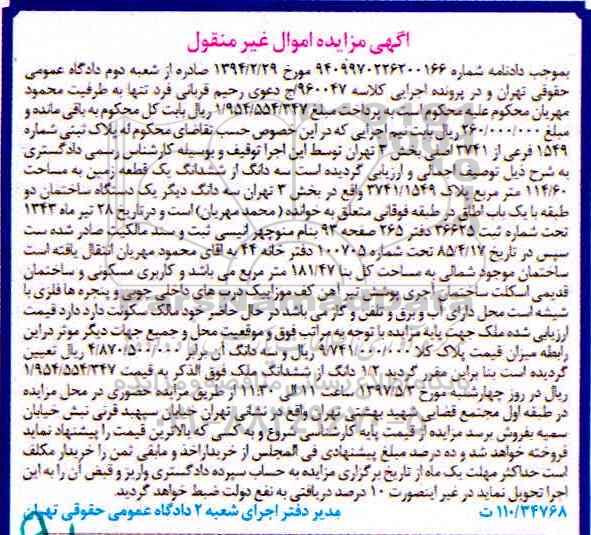 آگهی مزایده اموال غیر منقول
بموجب دادنامه شماره ۹۴۰۹۹۷۰۲۲۶۲۰۰۱۶۶ مورخ ۱۳۹۴/۲/۲۹ صادره از شعبه دوم دادگاه عمومی
حقوقی تهران و در پرونده اجرایی کلاسه ۹۶۰۰۴۷/ج دعوی رحیم قربانی فرد تنها به طرفیت محمود
مهربان محکوم علیه محکوم است به پرداخت مبلغ ۱/۹۵۴/۵۵۴/۳۴۷ ریال بابت کل محکوم به باقی مانده و
مبلغ ۲۶۰/۰۰۰/۰۰۰ ریال بابت نیم اجرایی که در این خصوص حسب تقاضای محکوم له پلاک ثبتی شماره
۱۵۴۹ فرعی از ۳۷۴۱ اصلی بخش ۳ تهران توسط این اجرا توقیف و بوسیله کارشناس رسمی دادگستری
به شرح ذیل توصیف اجمالی و ارزیابی گردیده است سه دانگ از ششدانگ یک قطعه زمین به مساحت
۱۱۴/۶۰ متر مربع پلاک ۳۷۴۱/۱۵۴۹ واقع در بخش ۳ تهران سه دانگ دیگر یک دستگاه ساختمان دو
طبقه با یک باب اطاق در طبقه فوقانی متعلق به خوانده (محمد مهربان) است و درتاریخ ۲۸ تیر ماه ۱۳۴۳
تحت شماره ثبت ۳۶۶۲۵ دفتر ۲۶۵ صفحه ۹۳ بنام منوچهر انیسی ثبت و سند مالکیت صادر شده ست
سپس در تاریخ ۸۵/۴/۱۷ تحت شماره ۱۰۰۷۰۵ دفتر خانه ۴۴ به اقای محمود مهربان انتقال یافته است
ساختمان موجود شمالی به مساحت کل بنا ۱۸۱/۴۷ متر مربع می باشد و کاربری مسکونی و ساختمان
قدیمی اسکلت ساختمان آجری پوشش تیر آهن کف موزاییک درب های داخلی چوبی و پنجره ها فلزی با
شیشه است محل دارای آب و برق و تلفن و گاز می باشد در حال حاضر خود مالک سکونت دارد دارد قیمت
ارزیابی شده ملک جهت پایه مزایده با توجه به مراتب فوق و موقعیت محل و جمیع جهات دیگر موثر دراین
رابطه میزان قیمت پلاک کلا ۹/۷۴۱/۰۰۰/۰۰۰ ریال و سه دانگ آن برابر ۴/۸۷۰/۵۰۰/۰۰۰ ریال تعیین
گردیده است بنا براین مقرر گردید ۱/۲ دانگ از ششدانگ ملک فوق الذکر به قیمت ۱/۹۵۴/۵۵۴/۳۴۷
ریال در روز چهارشنبه مورخ ۱۳۹۷/۵/۳ ساعت ۱۱ الی ۱۱:۳۰ از طریق مزایده حضوری در محل مزایده
در طبقه اول مجتمع قضایی شهید بهشتی تهران واقع در نشانی تهران خیابان سپهبد قرنی نبش خیابان
سمیه بفروش برسد مزایده از قیمت پایه کارشناسی شروع و به کسی که بالاترین قیمت را پیشنهاد نماید
فروخته خواهد شد و ده درصد مبلغ پیشنهادی فی المجلس از خریداراخذ و مابقی ثمن را خریدار مکلف
است حداکثر مهلت یک ماه از تاریخ برگزاری مزایده به حساب سپرده دادگستری واریز و قبض آن را به این
اجرا تحویل نماید در غیر اینصورت ۱۰ درصد دریافتی به نفع دولت ضبط خواهد گردید.
۱۱۰/۳۴۷۶۸ ت مدیر دفتر اجرای شعبه ۲ دادگاه عمومی حقوقی تهران